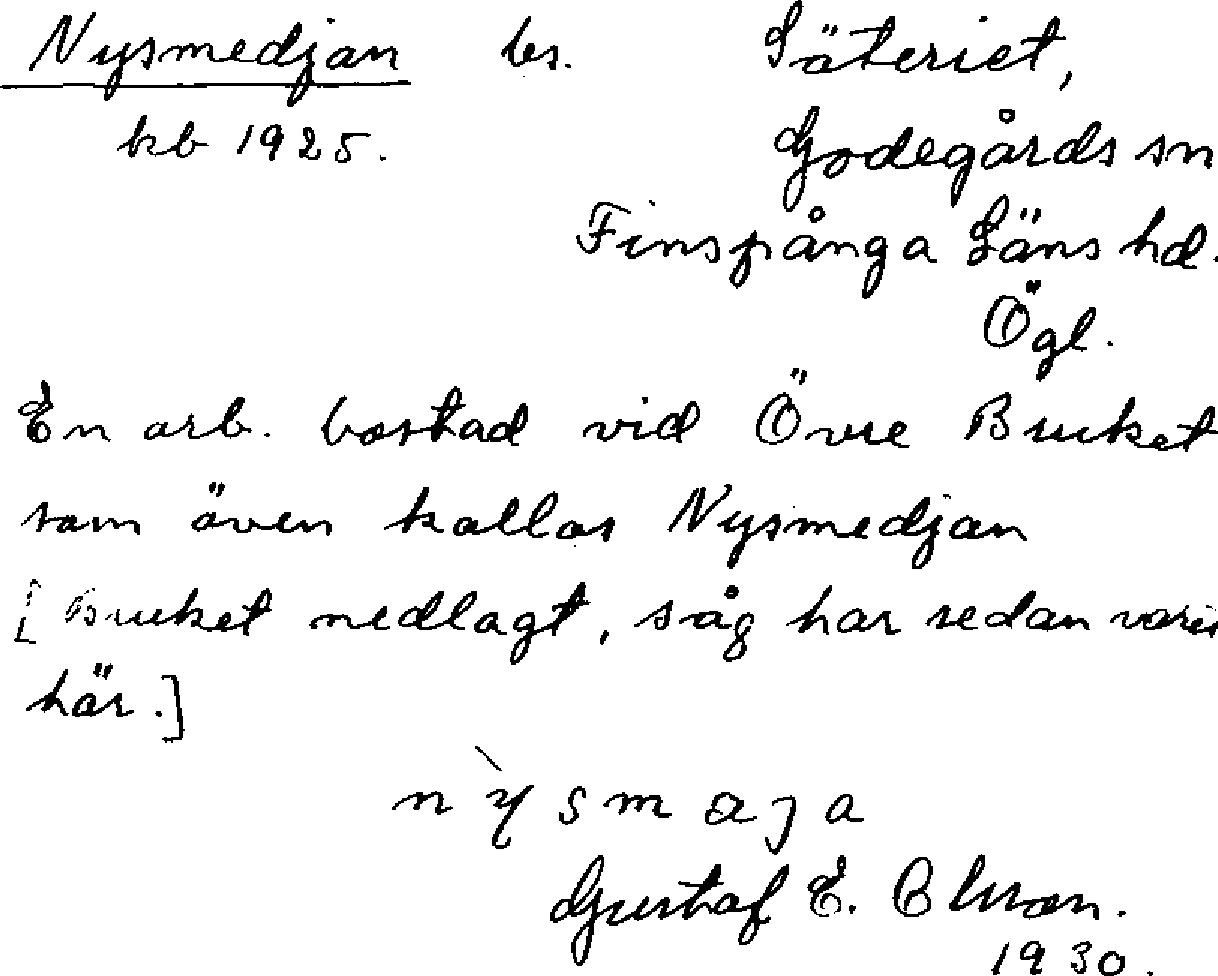 Nysmedjan bs. Säteriet,
kb 1925. Godegårds sn
Finspånga Läns hd.
Ögl.
En arb. bostad vid Övre Bruket
som även kallas Nysmedjan
[Bruket nedlagt, såg har sedan varit
här.]
nỳsmæja
Gustaf E. Olsson.
1930.